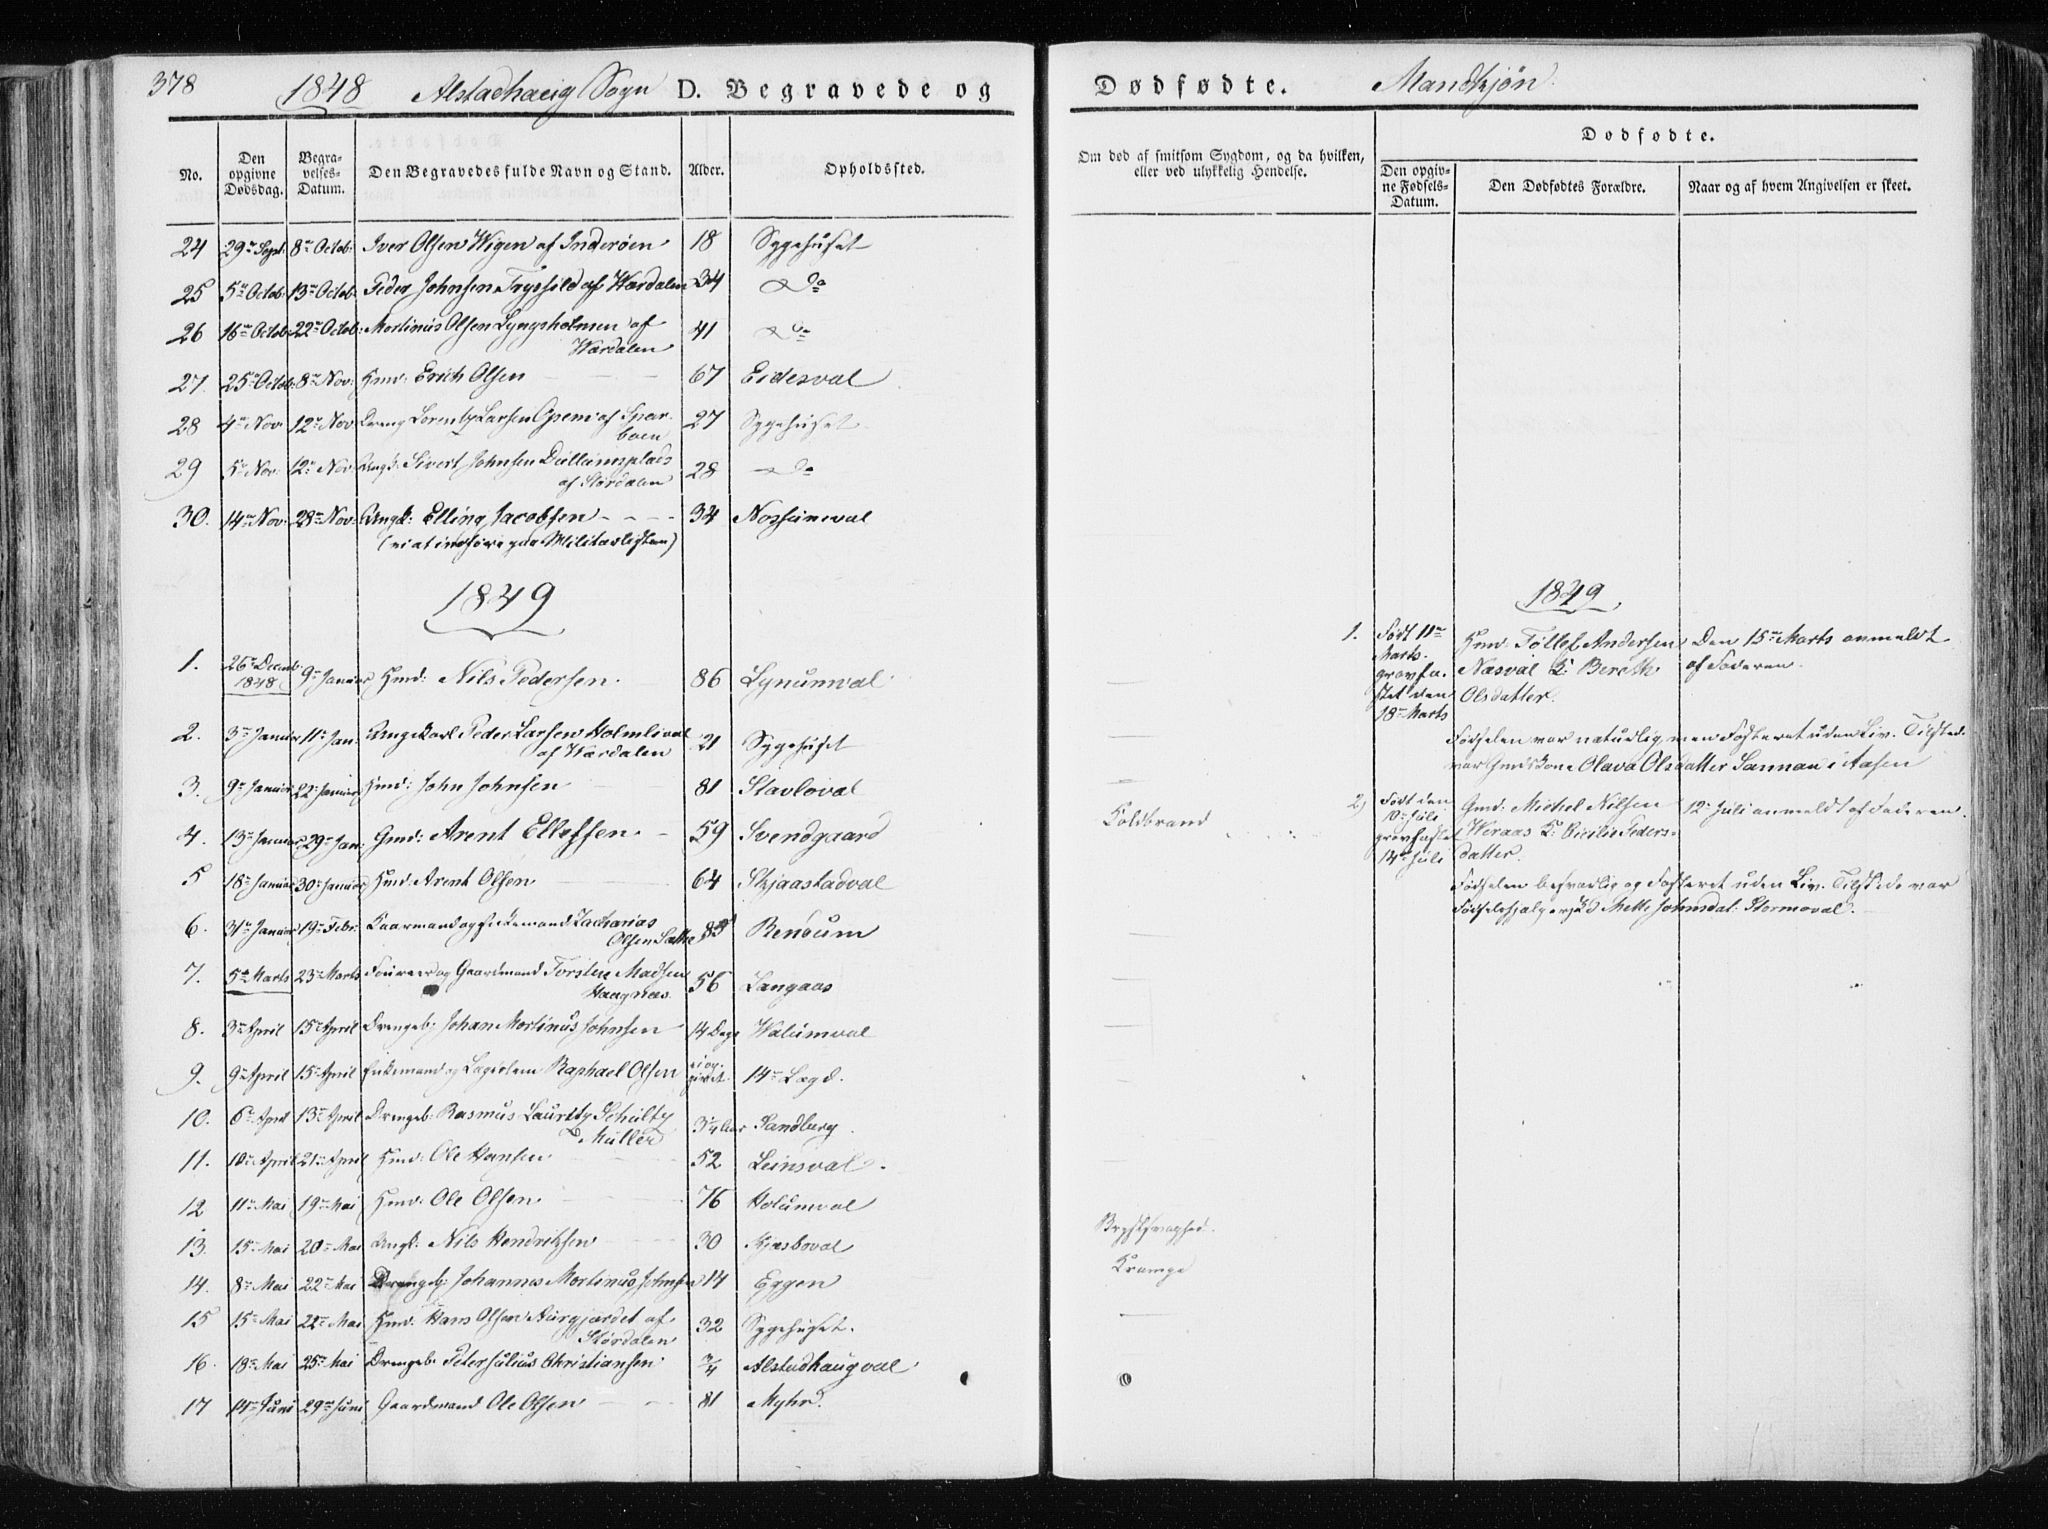 378 1848 Alstadhaug Sogn D. Begravede og
No. Den opgivne Dødsdag. Begravelses-Datum. Den Begravedes fulde Navn og Stand. Alder. Opholdssted.
24 29de Sept: 8de Octob: Iver Olsen Wigen af Inderøen 18 Sygehuset
25 5te Octob: 13de Octob: Peder Johnsen Trysfild af Værdalen 34 Do
26 16de Octob: 22de Octob: Mortinus Olsen Lyngsholmen af 41 Do
Værdalen
27. 25de Octob: 8de Nov: Hmd: Erich Olsen 67 Eidesval
28 4de Nov: 12te Nov: Dreng Lorentz Larsen Opem af Spar- 27 Sygehuset
boen
29 5te Nov: 12te Nov: Ungk: Sivert Johnsen Dullumsplads 28 Do
af Størdalen
30. 14de Nov: 28de Nov: Ungk: Elling Jacobsen 34 Nossumval
(ei at indføre paa Militærlisten)
1849
1. 26de Decemb: 1848 9de Januar Hmd: Nils Pedersen 86 Lynumval
2. 3de Januar 11te Jan: Ungekarl Peder Larsen Holmlival 21 Sygehuset
af Værdalen
3. 9de Januar 22de Januar Hmd: John Johnsen 81 Stavloval
4. 13de Januar 29de Jan: Gmd: Arent Ellefsen 59 Svendgaard
5 18de Januar 30te Januar Hmd: Arent Olsen 64 Skjaastadval
6. 31te Januar 19de Febr: Kaarmand og Enkemand Zacharias
Olsen Rendum
7. 5te Marts 23de Marts Foureer og Gaardmand Torsten Madsen 56 Langaas
Haugnæs
8. 3de April 15de April Drengeb: Johan Mortinus Johnsen 14 Dage Walumval
9. 9de April 15de April Enkemand og Lægdslem Raphael Olsen ei opgivet 14de Lægd.
10. 6te April 13de April Drengeb: Rasmus Lauritz Schultz Sandberg
Müller
11. 10de April 21de April Hmd: Ole Hansen 52 Leinsval
12 11te Mai 19de Mai Hmd: Ole Olsen 76 Holumval
13. 15de Mai 20de Mai Ungk: Nils Hendriksen 30 Kjæsboval
14. 8de Mai 22de Mai Drengeb: Johannes Mortinus Johnsen 14 Eggen
15 15de Mai 22de Mai Hmd: Hans Olsen Aurgjærdet af 32 Sygehuset.
Størdalen
16. 18de Mai 25de Mai Drengeb: Peter Julius Christiansen 3/4 Alstadhaugval
17 14de Juni 29de Juni Gaardmand Ole Olsen 81 Myhr
Dødfødte. Mandkjøn.
Om død af smitsom Sygdom, og da hvilken, eller ved ulykkelig Hendelse.
Dødfødte.
Den opgivne Fødsels-Datum. Den Dødfødtes Forældre. Naar og af hvem Angivelsen er skeet.
1849
1. Født 11te Hmd: Tøllef Andersen Den 15de Marts anmeldt
Marts. Næsval K: Bereth af Faderen.
gravfæ- Olsdatter.
stet den
18de Marts
Fødselen var naturlig, men Fosteret uden Liv. Tilsted:
var Gmdskone Olava Olsdatter Sannan i Aasen
Koldbrand
2) Født den Gmd: Michel Nilsen 12te Juli anmeldt af Faderen.
10de Juli Weraas K: Cicilie Peders-
gravfæstet datter.
14de Juli
Fødselen besværlig og Fosteret uden Liv. Tilstede var
Mette Johnsdat: Stormoval.
Brystsvaghed.
Krampe